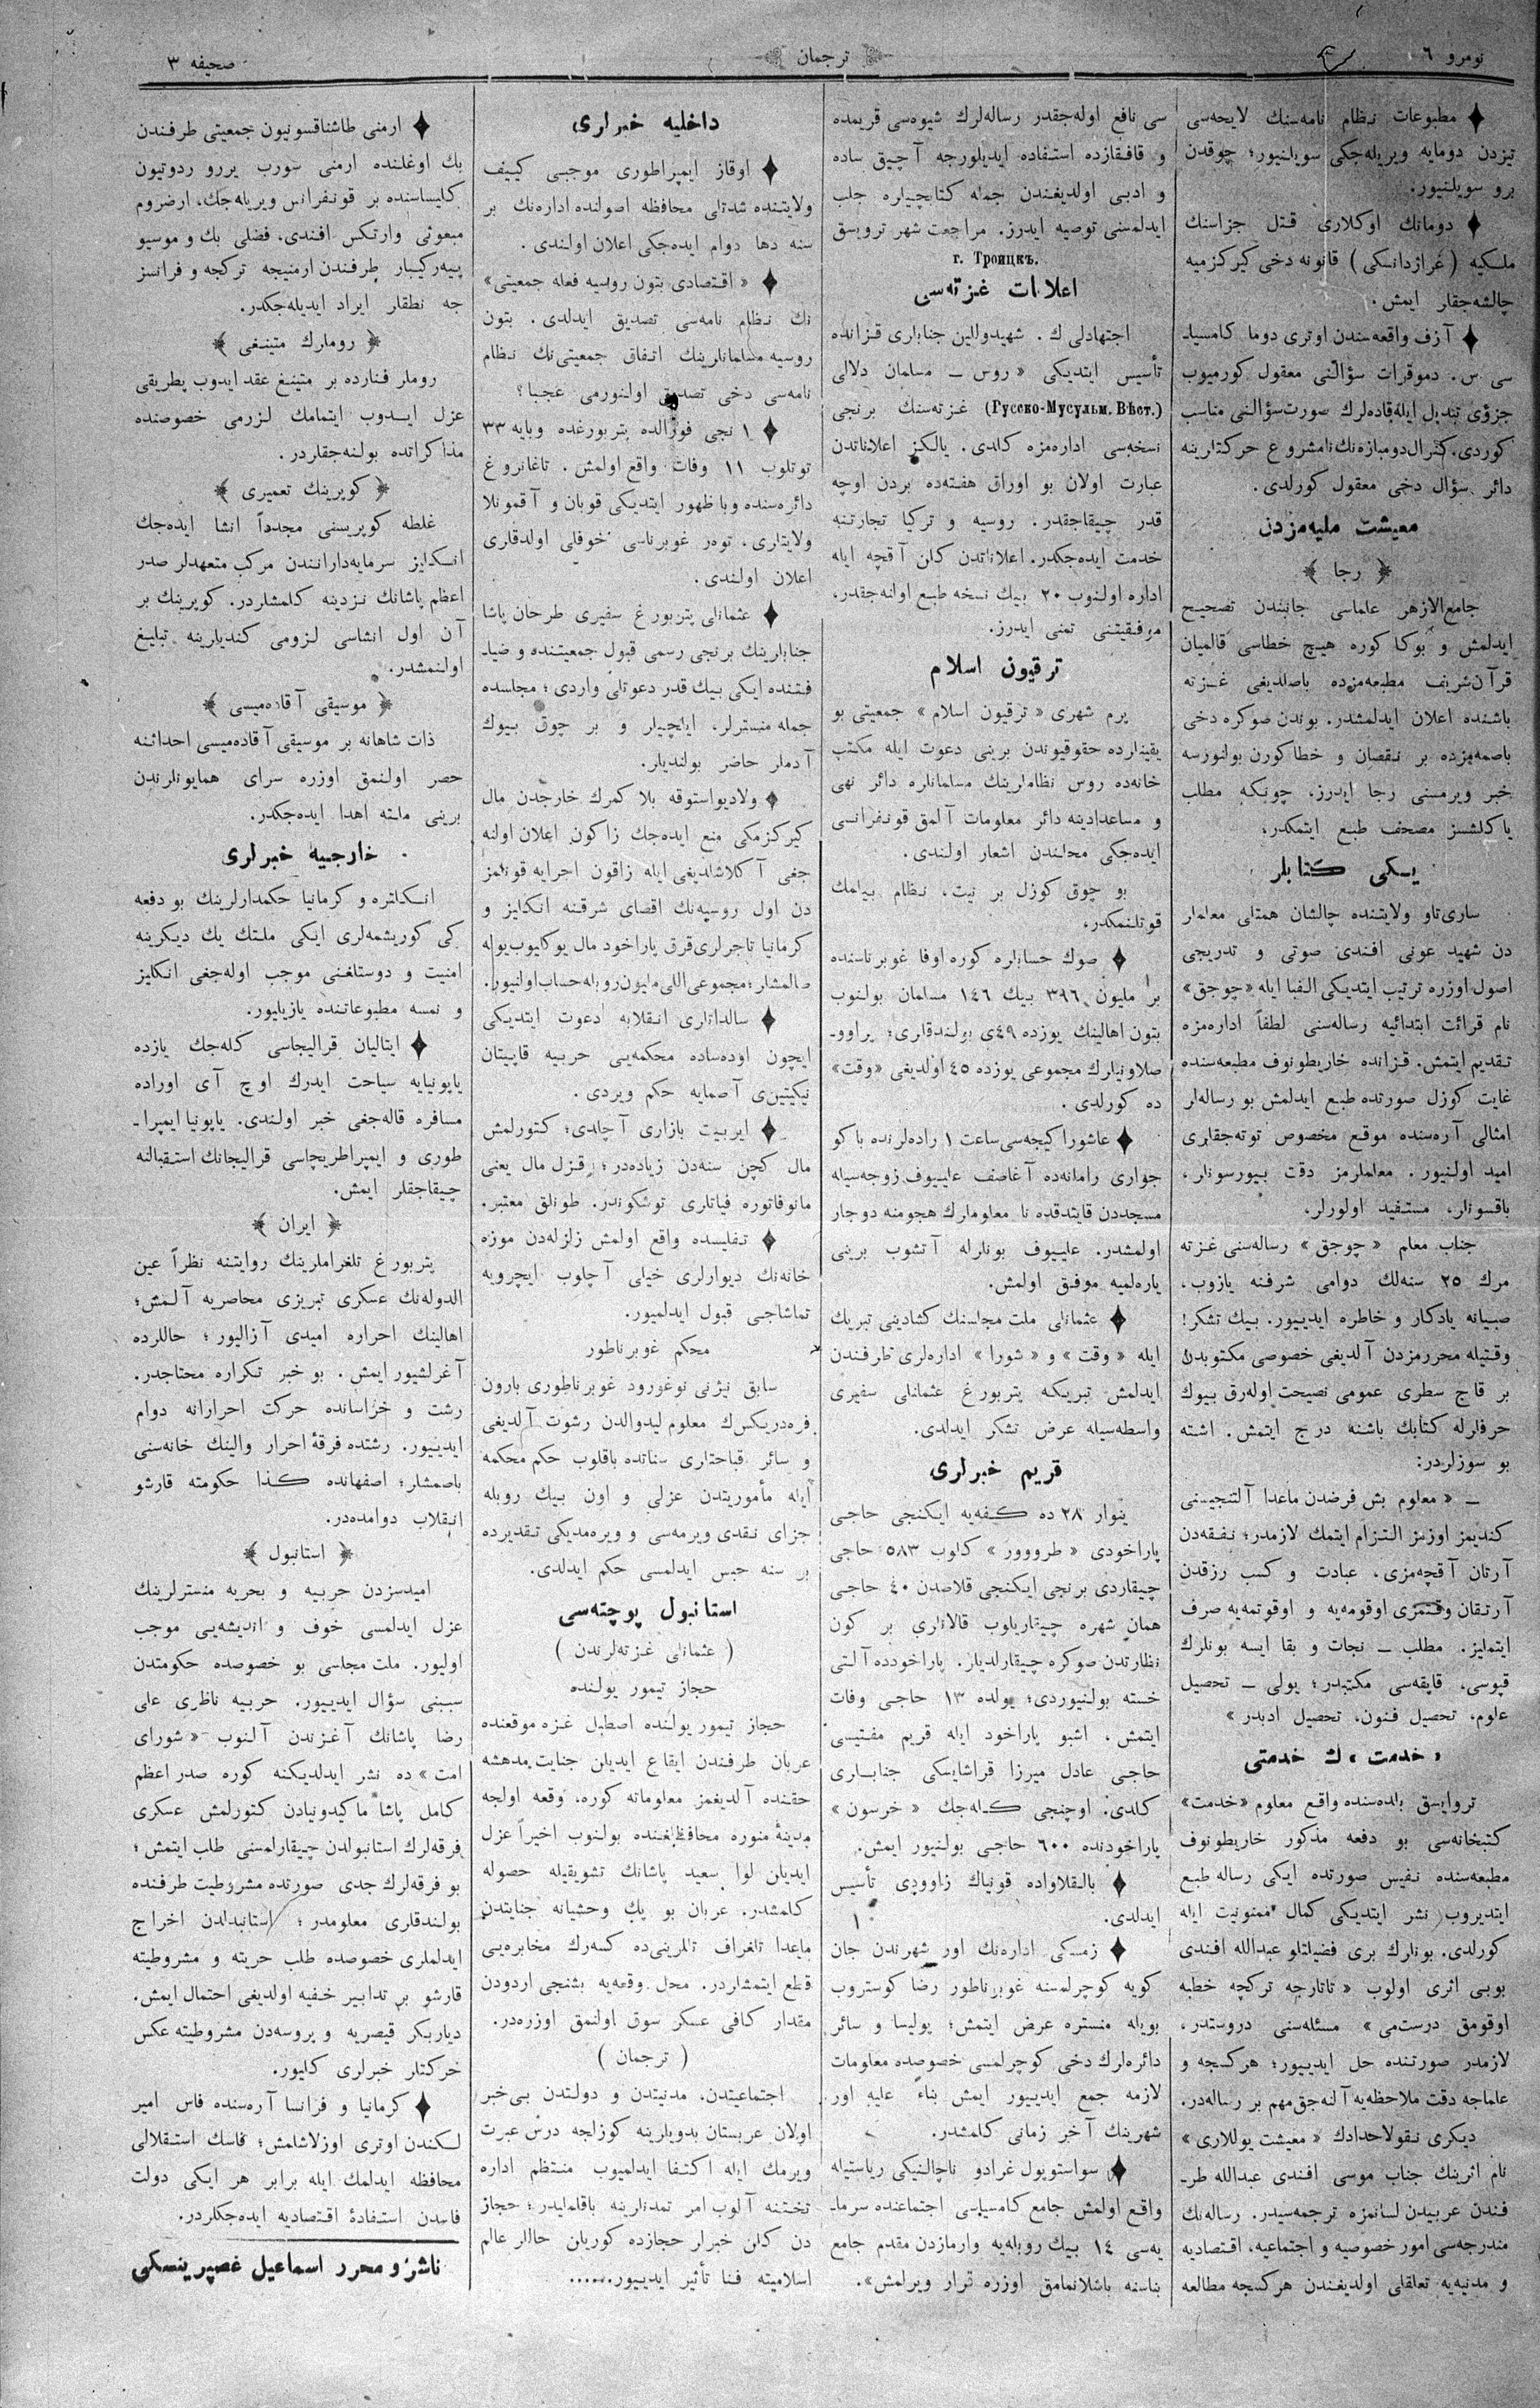 نومرو ٦
ترجمان
صحيفه ٣
مطبوعات نظام نامه‌سنك لايحه‌سی
تيزدن دومايه ويريله‌جكی سويلنيور؛ چوقدن
برو سويلنيور.
دومانك اوكلاری قتل جزاسنك
ملكيه (غراژدانسكی) قانونه دخی كيركزميه
چالشه‌جقلر ايمش.
آزف واقعه‌سندن اوتری دوما كامسيا-
سی س. دموقرات سؤالنی معقول كورميوب
جزؤی تبديل ايله قاده‌لرك صورت سؤالنی مناسب
كوردی. كنرال دومبازه‌نك نامشروع حركتلرينه
دائر سؤال دخی معقول كورلدی.
معيشت مليه‌مزدن
﴿ رجا ﴾
جامع الازهر علماسی جانبندن تصحيح
ايدلمش و بوكا كوره هيچ خطاسی قالميان
قرآن شريف مطبعه‌مزده باصلديغی غزته
باشنده اعلان ايدلمشدر. بوندن صوكره دخی
باصمه‌مزده بر نقصان و خطا كورن بولنورسه
خبر ويرمسنی رجا ايدرز، چونكه مطلب
ياكلشسز مصحف طبع ايتمكدر.
يسكی كتابلر
ساری‌تاو ولايتنده چالشان همتلی معلملر
دن شهيد عونی افندی صوتی و تدريجی
اصول اوزره ترتيب ايتديكی الفبا ايله «چوجق»
نام قرائت ابتدائيه رساله‌سنی لطفاً اداره‌مزه
تقديم ايتمش. قزانده خاريطونوف مطبعه‌سنده
غايت كوزل صورتده طبع ايدلمش بو رساله‌لر
امثالی آره‌سنده موقع مخصوص توته‌جقلری
اميد اولنيور. معلملرمز دقت بيورسونلر،
باقسونلر، مستفيد اولورلر.
جناب معلم «چوجق» رساله‌سنی غزته
مزك ٢٥ سنه‌لك دوامی شرفنه يازوب،
صبيانه يادكار و خاطره ايدييور. بيك تشكر!
وقتيله محررمزدن آلديغی خصوصی مكتوبدن
بر قاچ سطری عمومی نصيحت اوله‌رق بيوك
حرفلرله كتابك باشنه درج ايتمش. اشته
بو سوزلردر:
— «معلوم بش فرضدن ماعدا آلتنجيسنی
كنديمز اوزمز التزام ايتمك لازمدر؛ نفقه‌دن
آرتان آقچه‌مزی، عبادت و كسب رزقدن
آرتقان وقتمزی اوقومه‌يه و اوقوتمه‌يه صرف
ايتملیز. مطلب — نجات و بقا ايسه بونلرك
قپوسی، قاپقه‌سی مكتبدر؛ يولی — تحصيل
علوم، تحصيل فنون، تحصيل ادبدر»
«خدمت» ك خدمتی
ترويسق بلده‌سنده واقع معلوم «خدمت»
كتبخانه‌سی بو دفعه مذكور خاريطونوف
مطبعه‌سنده نفيس صورتده ايكی رساله طبع
ايتديروب نشر ايتديكی كمال ممنونيت ايله
كورلدی. بونلرك بری فضيلتلو عبدالله افندی
بوبی اثری اولوب «تاتارجه تركچه خطبه
اوقومق درست‌می» مسئله‌سنی دروستدر،
لازمدر صورتنده حل ايدييور؛ هركسجه و
علماجه دقت ملاحظه‌يه آلنه‌جق مهم بر رساله‌در.
ديكری نقولاحدادك «معيشت يوللاری»
نام اثرينك جناب موسی افندی عبدالله طر-
فندن عربيدن لسانمزه ترجمه‌سيدر. رساله‌نك
مندرجه‌سی امور خصوصيه و اجتماعيه، اقتصاديه
و مدنيه‌يه تعلقلی اولديغندن هركسجه مطالعه
سی نافع اوله‌جقدر رساله‌لرك شيوه‌سی قريمده
و قافقازده استفاده ايديلورجه آچيق ساده
و ادبی اولديغندن جمله كتابچيلره جلب
ايدلمسنی توصيه ايدرز. مراجعت شهر ترويسق
г. Троицкъ.
اعلانات غزته‌سی
اجتهادلی ك. شهيدوالين جنابلری قزانده
تأسيس ايتديكی «روس — مسلمان دلالی
(Русско-Мусульм. Вѣст.) غزته‌سنك برنجی
نسخه‌سی اداره‌مزه كلدی. يالكز اعلاناتدن
عبارت اولان بو اوراق هفته‌ده بردن اوچه
قدر چيقاجقدر. روسيه و تركيا تجارتنه
خدمت ايده‌جكدر. اعلاناتدن كلن آقچه ايله
اداره اولنوب ٢٠ بيك نسخه طبع اولنه‌جقدر،
موفقيتنی تمنی ايدرز.
ترقيون اسلام
پرم شهری «ترقيون اسلام» جمعيتی بو
يقينلرده حقوقيوندن برينی دعوت ايله مكتب
خانه‌ده روس نظاملرينك مسلمانلره دائر نهی
و مساعداتنه دائر معلومات آلمق قونفرانسی
ايده‌جكی محلندن اشعار اولندی.
بو چوق كوزل بر نيت، نظام بيلمك
قوتلنمكدر.
صوك حسابلره كوره اوفا غوبرناسنده
بر مليون ٣٩٦ بيك ١٤٦ مسلمان بولنوب
بتون اهالينك يوزده ٤٩ی بولندقلری؛ پراوو-
صلاونيلرك مجموعی يوزده ٤٥ اولديغی «وقت»
ده كورلدی.
عاشورا كيجه‌سی ساعت ١ راده‌لرنده باكو
جواری رامانه‌ده آغاصف علييوف زوجه‌سيله
مسجددن قايتدقده نا معلوملرك هجومنه دوچار
اولمشدر. علييوف بونلرله آتشوب برينی
ياره‌لميه موفق اولمش.
عثمانلی ملت مجلسنك كشادينی تبريك
ايله «وقت» و «شورا» اداره‌لری طرفندن
ايدلمش تبريكه پتربورغ عثمانلی سفيری
واسطه‌سيله عرض تشكر ايدلدی.
قريم خبرلری
ينوار ٢٨ ده كفه‌يه ايكنجی حاجی
پاراخودی «طرووور» كلوب ٥٨٣ حاجی
چيقاردی برنجی ايكنجی قلاصدن ٤٠ حاجی
همان شهره چيقاريلوب قالانلری بر كون
نظارتدن صوكره چيقارلديلر. پاراخودده آلتی
خسته بولنيوردی؛ يولده ١٣ حاجی وفات
ايتمش، اشبو پاراخود ايله قريم مفتيسی
حاجی عادل ميرزا قراشايسكی جنابلری
كلدی. اوچنجی كله‌جك «خرسون»
پاراخودنده ٦٠٠ حاجی بولنيور ايمش.
بالقلاواده قونياك زاوودی تأسيس
ايدلدی.
زمسكی اداره‌نك اور شهرندن جان
كويه كوچرلمسنه غوبرناطور رضا كوستروب
بويله منستره عرض ايتمش؛ پوليسا و سائر
دائره‌لرك دخی كوچرلمسی خصوصده معلومات
لازمه جمع ايدييور ايمش بناءً عليه اور
شهرينك آخر زمانی كلمشدر.
سواستوپول غرادو ناچالنيكی رياستيله
واقع اولمش جامع كامسيه‌سی اجتماعنده سرما-
يه‌سی ١٤ بيك روبله‌يه وارمازدن مقدم جامع
بناسنه باشلانمامق اوزره قرار ويرلمش».
داخليه خبرلری
اوقاز ايمپراطوری موجبی كييف
ولايتنده شدتلی محافظه اصولنده اداره‌نك بر
سنه دها دوام ايده‌جكی اعلان اولندی.
«اقتصادی بتون روسيه فعله جمعيتی»
نك نظام نامه‌سی تصديق ايدلدی. بتون
روسيه مسلمانلرينك اتفاق جمعيتی‌نك نظام
نامه‌سی دخی تصديق اولنورمی عجبا؟
١ نجی فورالده پتربورغده وبايه ٣٣
توتلوب ١١ وفات واقع اولمش. تاغانروغ
دائره‌سنده وبا ظهور ايتديكی قوبان و آقمونلا
ولايتلری، توه‌ر غوبرناسی خوفلی اولدقلری
اعلان اولندی.
عثمانلی پتربورغ سفيری طرخان پاشا
جنابلرينك برنجی رسمی قبول جمعيتنده و ضيا-
فتنده ايكی بيك قدر دعوتلی واردی؛ مجلسده
جمله منسترلر، ايلچيلر و بر چوق بيوك
آدملر حاضر بولنديلر.
ولاديواستوقه بلا كمرك خارجدن مال
كيركزمكی منع ايده‌جك زاكون اعلان اولنه
جغی آكلاشلديغی ايله زاقون اجرايه قونلمز
دن اول روسيه‌نك اقصای شرقنه انكليز و
كرمانيا تاجرلری قرق پاراخود مال يوكليوب يوله
صالمشلر؛ مجموعی اللی مليون روبله حساب اولنيور.
سالداتلری انقلابه دعوت ايتديكی
ايچون اوده‌ساده محكمه‌يی حربيه قاپيتان
نيكيتين‌ی آصمايه حكم ويردی.
ايربيت بازاری آچلدی؛ كتورلمش
مال كچن سنه‌دن زياده‌در؛ قزل مال يعنی
مانوفاتوره فياتلری توشكوندر. طونلق معتبر.
تفليسده واقع اولمش زلزله‌دن موزه
خانه‌نك ديوارلری خيلی آچلوب ايچرويه
تماشاجی قبول ايدلميور.
محكم غوبرناطور
سابق نيژنی نوغورود غوبرناطوری بارون
فره‌دريكس‌ك معلوم ليدوالدن رشوت آلديغی
و سائر قباحتلری سناتده باقلوب حكم محكمه
ايله مأموريتدن عزلی و اون بيك روبله
جزای نقدی ويرمه‌سی و ويره‌مديكی تقديرده
بر سنه حبس ايدلمسی حكم ايدلدی.
استانبول پوچته‌سی
(عثمانلی غزته‌لرندن)
حجاز تيمور يولنده
حجاز تيمور يولنده اصطبل غزه موقعنده
عربان طرفندن ايقاع ايديلن جنايت مدهشه
حقنده آلديغمز معلوماته كوره، وقعه اولجه
مدينهٔ منوره محافظلغنده بولنوب اخيراً عزل
ايديلن لوا سعيد پاشانك تشويقيله حصوله
كلمشدر. عربان بو پك وحشيانه جنايتدن
ماعدا تلغراف تللرينی‌ده كسه‌رك مخابره‌يی
قطع ايتمشلردر. محل وقعه‌يه بشنجی اردودن
مقدار كافی عسكر سوق اولنمق اوزره‌در.
(ترجمان)
اجتماعيتدن، مدنيتدن و دولتدن بی‌خبر
اولان عربستان بدويلرينه كوزلجه درس عبرت
ويرمك ايله اكتفا ايدلميوب منتظم اداره
تختنه آلوب امر تمدنلرينه باقلمليدر؛ حجاز
دن كلن خبرلر حجازده كوريلن حاللر عالم
اسلاميته فنا تأثير ايدييور......
ارمنی طاشناقسوتيون جمعيتی طرفندن
بك اوغلنده ارمنی سورب يررو ردوتيون
كليساسنده بر قونفرانس ويريله‌جك، ارضروم
مبعوثی وارتكس افندی، فضلی بك و موسيو
پيه‌ركيبار طرفندن ارمنيجه تركجه و فرانسز
جه نطقلر ايراد ايديله‌جكدر.
﴿ روملرك متينغی ﴾
روملر فنارده بر متينغ عقد ايدوب پطريقی
عزل ايدوب ايتمامك لزومی خصوصنده
مذاكراتده بولنه‌جقلردر.
﴿ كوپرينك تعميری ﴾
غلطه كوپريسنی مجدداً انشا ايده‌جك
انكليز سرمايه‌دارانندن مركب متعهدلر صدر
اعظم پاشانك نزدينه كلمشلردر. كوپرينك بر
آن اول انشاسی لزومی كنديلرينه تبليغ
اولنمشدر.
﴿ موسيقی آقاده‌ميسی ﴾
ذات شاهانه بر موسيقی آقاده‌ميسی احداثنه
حصر اولنمق اوزره سرای همايونلرندن
برينی ملته اهدا ايده‌جكدر.
خارجيه خبرلری
انكلتره و كرمانيا حكمدارلرينك بو دفعه
كی كوريشمه‌لری ايكی ملتك يك ديكرينه
امنيت و دوستلغنی موجب اوله‌جغی انكليز
و نمسه مطبوعاتنده يازيليور.
ايتاليان قراليجاسی كله‌جك يازده
ياپونيايه سياحت ايدرك اوچ آی اوراده
مسافره قاله‌جغی خبر اولندی. ياپونيا ايمپرا-
طوری و ايمپراطريچاسی قراليجانك استقبالنه
چيقاجقلر ايمش.
﴿ ايران ﴾
پتربورغ تلغراملرينك روايتنه نظراً عين
الدوله‌نك عسكری تبريزی محاصريه آلمش؛
اهالينك احراره اميدی آزاليور؛ حاللرده
آغرلشيور ايمش. بو خبر تكراره محتاجدر.
رشت و خراسانده حركت احرارانه دوام
ايدييور. رشتده فرقهٔ احرار والينك خانه‌سنی
باصمشلر؛ اصفهانده كذا حكومته قارشو
انقلاب دوامده‌در.
﴿ استانبول ﴾
اميدسزدن حربيه و بحريه منسترلرينك
عزل ايدلمسی خوف و انديشه‌يی موجب
اوليور. ملت مجلسی بو خصوصده حكومتدن
سببنی سؤال ايدييور. حربيه ناظری علی
رضا پاشانك آغزندن آلنوب «شورای
امت» ده نشر ايدلديكنه كوره صدر اعظم
كامل پاشا ماكيدونيادن كتورلمش عسكری
فرقه‌لرك استانبولدن چيقارلمسنی طلب ايتمش؛
بو فرقه‌لرك جدی صورتده مشروطيت طرفنده
بولندقلری معلومدر؛ استانبدلدن اخراج
ايدلملری خصوصده طلب حريته و مشروطيته
قارشو بر تدابير خفيه اولديغی احتمال ايمش.
دياربكر قيصريه و بروسه‌دن مشروطيته عكس
حركتلر خبرلری كليور.
كرمانيا و فرانسا آره‌سنده فاس امير
لكندن اوتری اوزلاشلمش؛ فاسك استقلالی
محافظه ايدلمك ايله برابر هر ايكی دولت
فاسدن استفادهٔ اقتصاديه ايده‌جكلردر.
ناشر و محرر اسماعيل غصپرينسكی